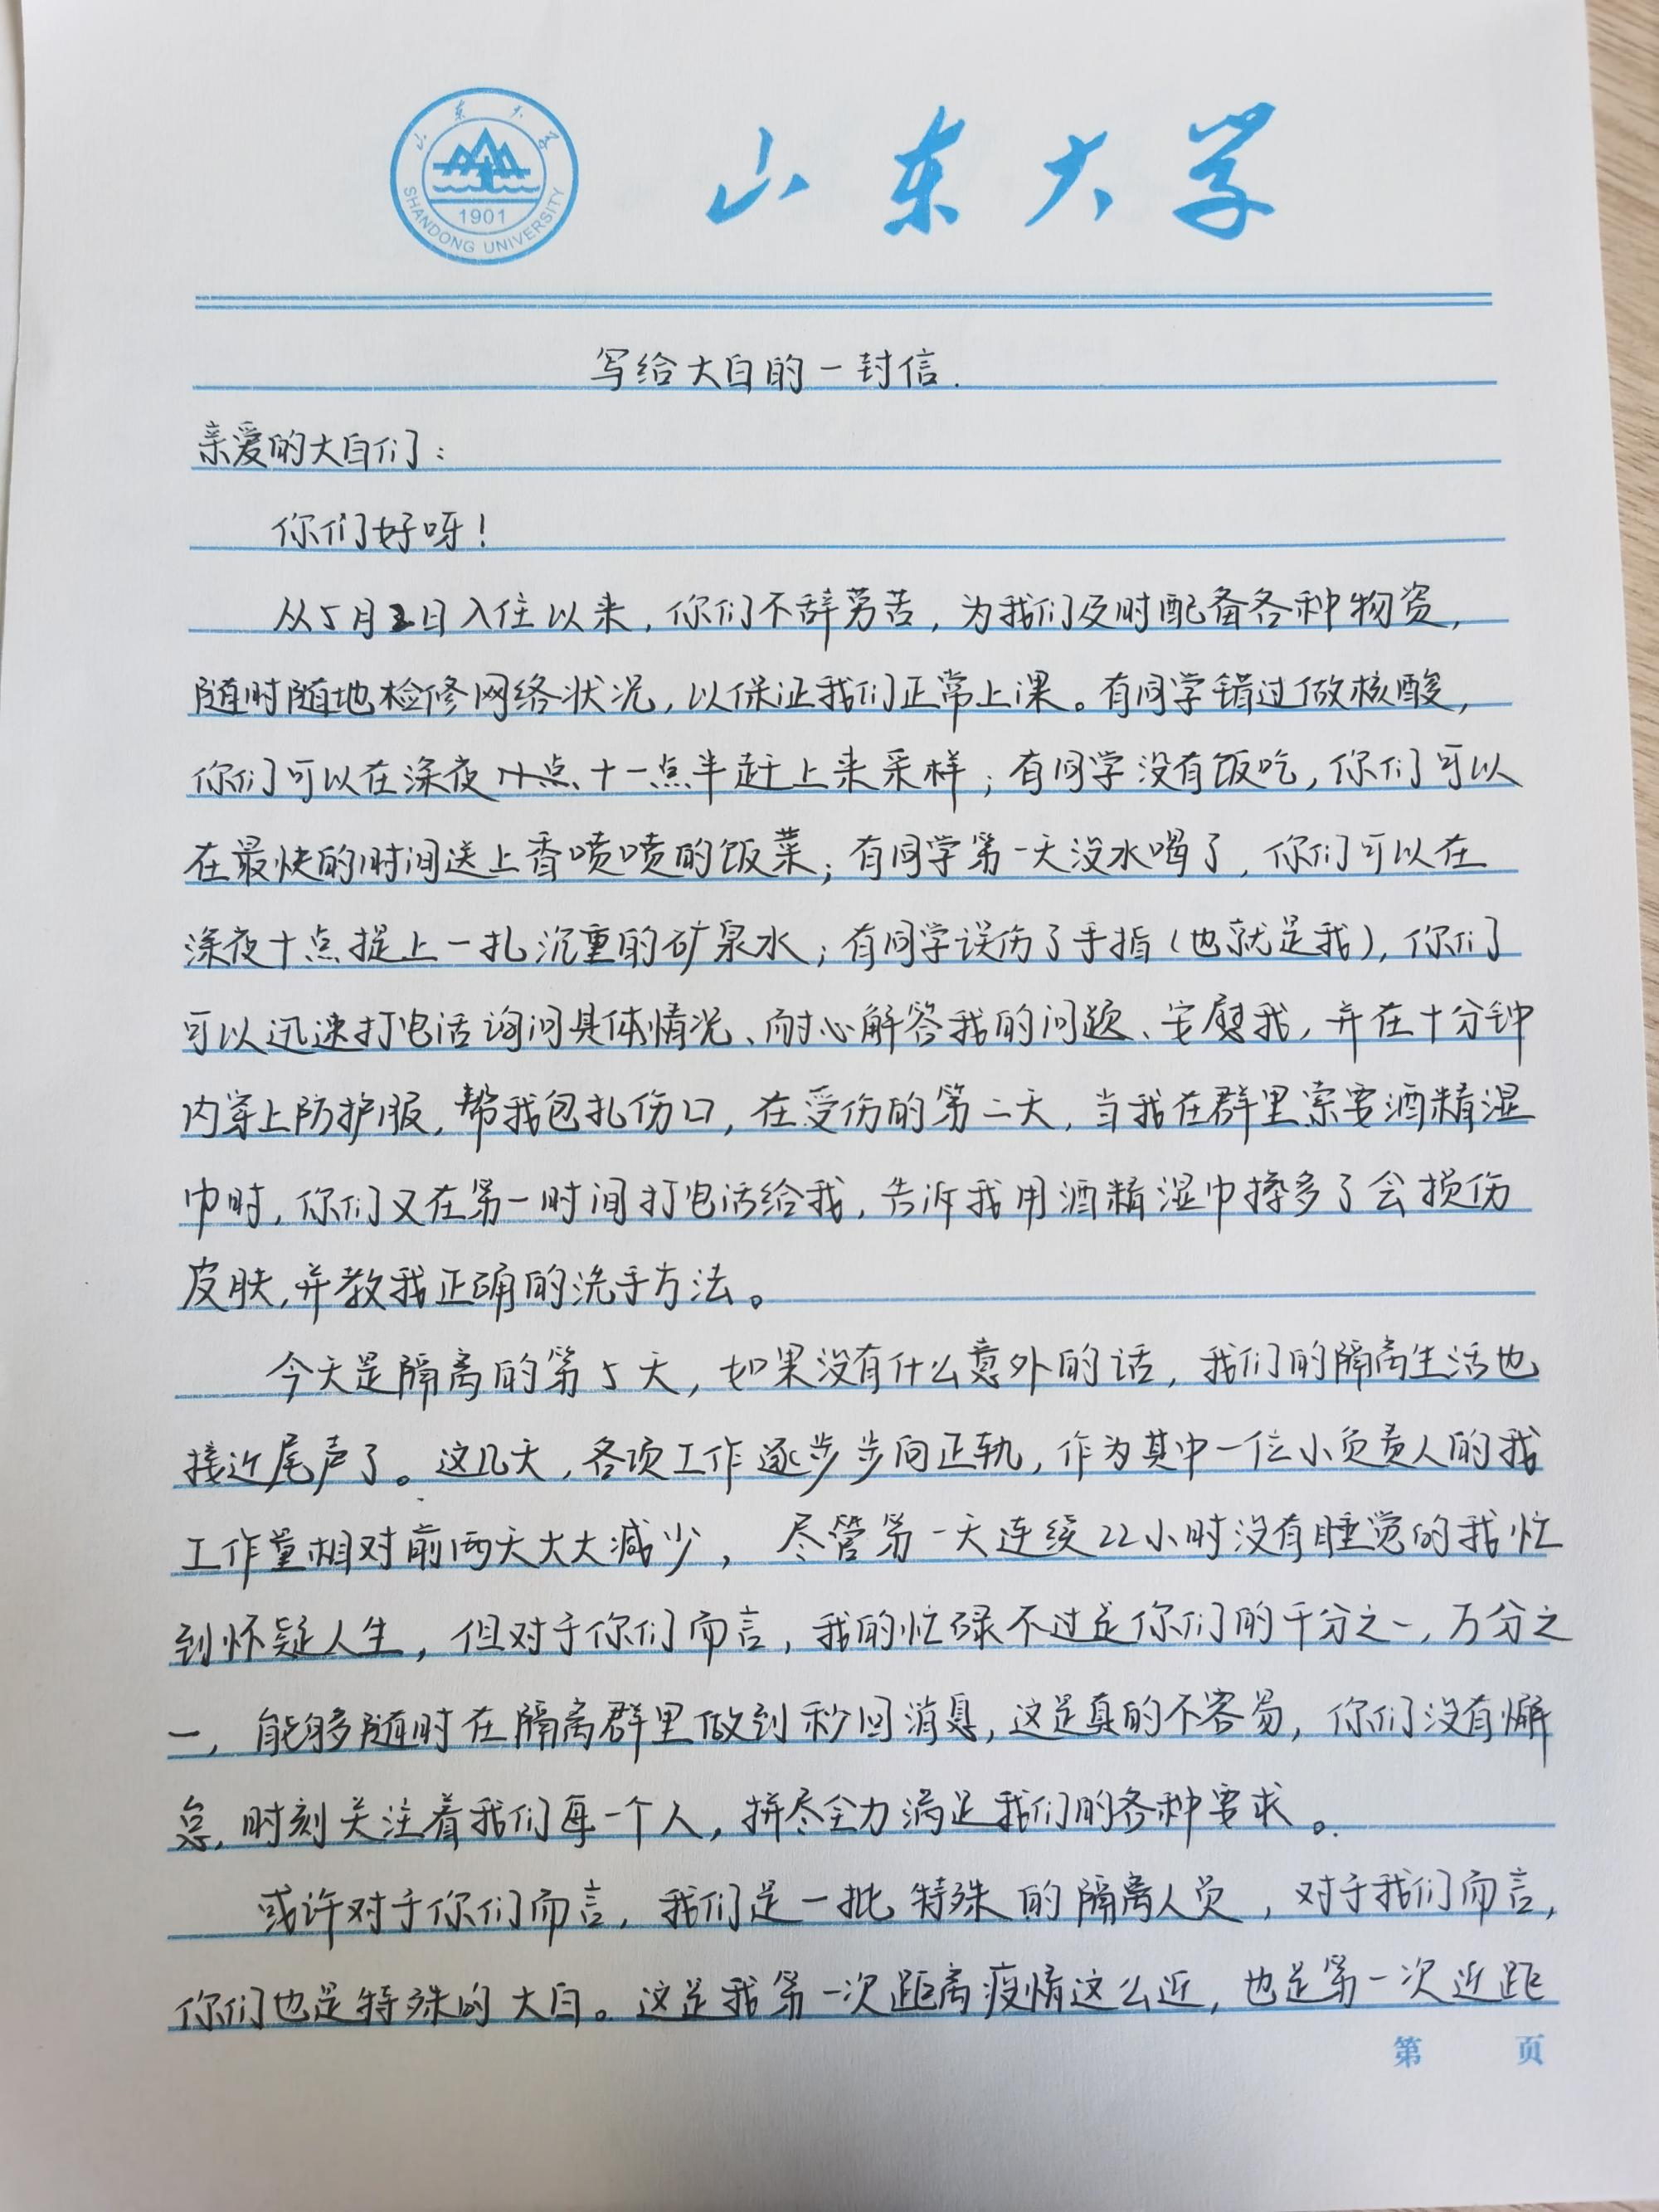 山东大学
SHANDONG UNIVERSITY
1901
山东大学
写给大白的一封信.
亲爱的大白们：
你们好呀！
从5月2日入住以来，你们不辞劳苦，为我们及时配备各种物资，
随时随地检修网络状况，以保证我们正常上课。有同学错过做核酸，
你们可以在深夜十一点半赶上来采样；有同学没有饭吃，你们可以
在最快的时间送上香喷喷的饭菜；有同学第一天没水喝了，你们可以在
深夜十点提上一扎沉重的矿泉水；有同学误伤了手指（也就是我），你们
可以迅速打电话询问具体情况、耐心解答我的问题、安慰我，并在十分钟
内穿上防护服，帮我包扎伤口，在受伤的第二天，当我在群里索要酒精湿
巾时，你们又在第一时间打电话给我，告诉我用酒精湿巾擦多了会损伤
皮肤，并教我正确的洗手方法。
今天是隔离的第5天，如果没有什么意外的话，我们的隔离生活也
接近尾声了。这几天，各项工作逐步步向正轨，作为其中一位小负责人的我
工作量相对前两天大大减少，尽管第一天连续22小时没有睡觉的我忙
到怀疑人生，但对于你们而言，我的忙碌不过是你们的千分之一，万分之
一，能够随时在隔离群里做到秒回消息，这是真的不容易，你们没有懈
怠，时刻关注着我们每一个人，拼尽全力满足我们的各种要求。
或许对于你们而言，我们是一批特殊的隔离人员，对于我们而言，
你们也是特殊的大白。这是我第一次距离疫情这么近，也是第一次近距
第 页